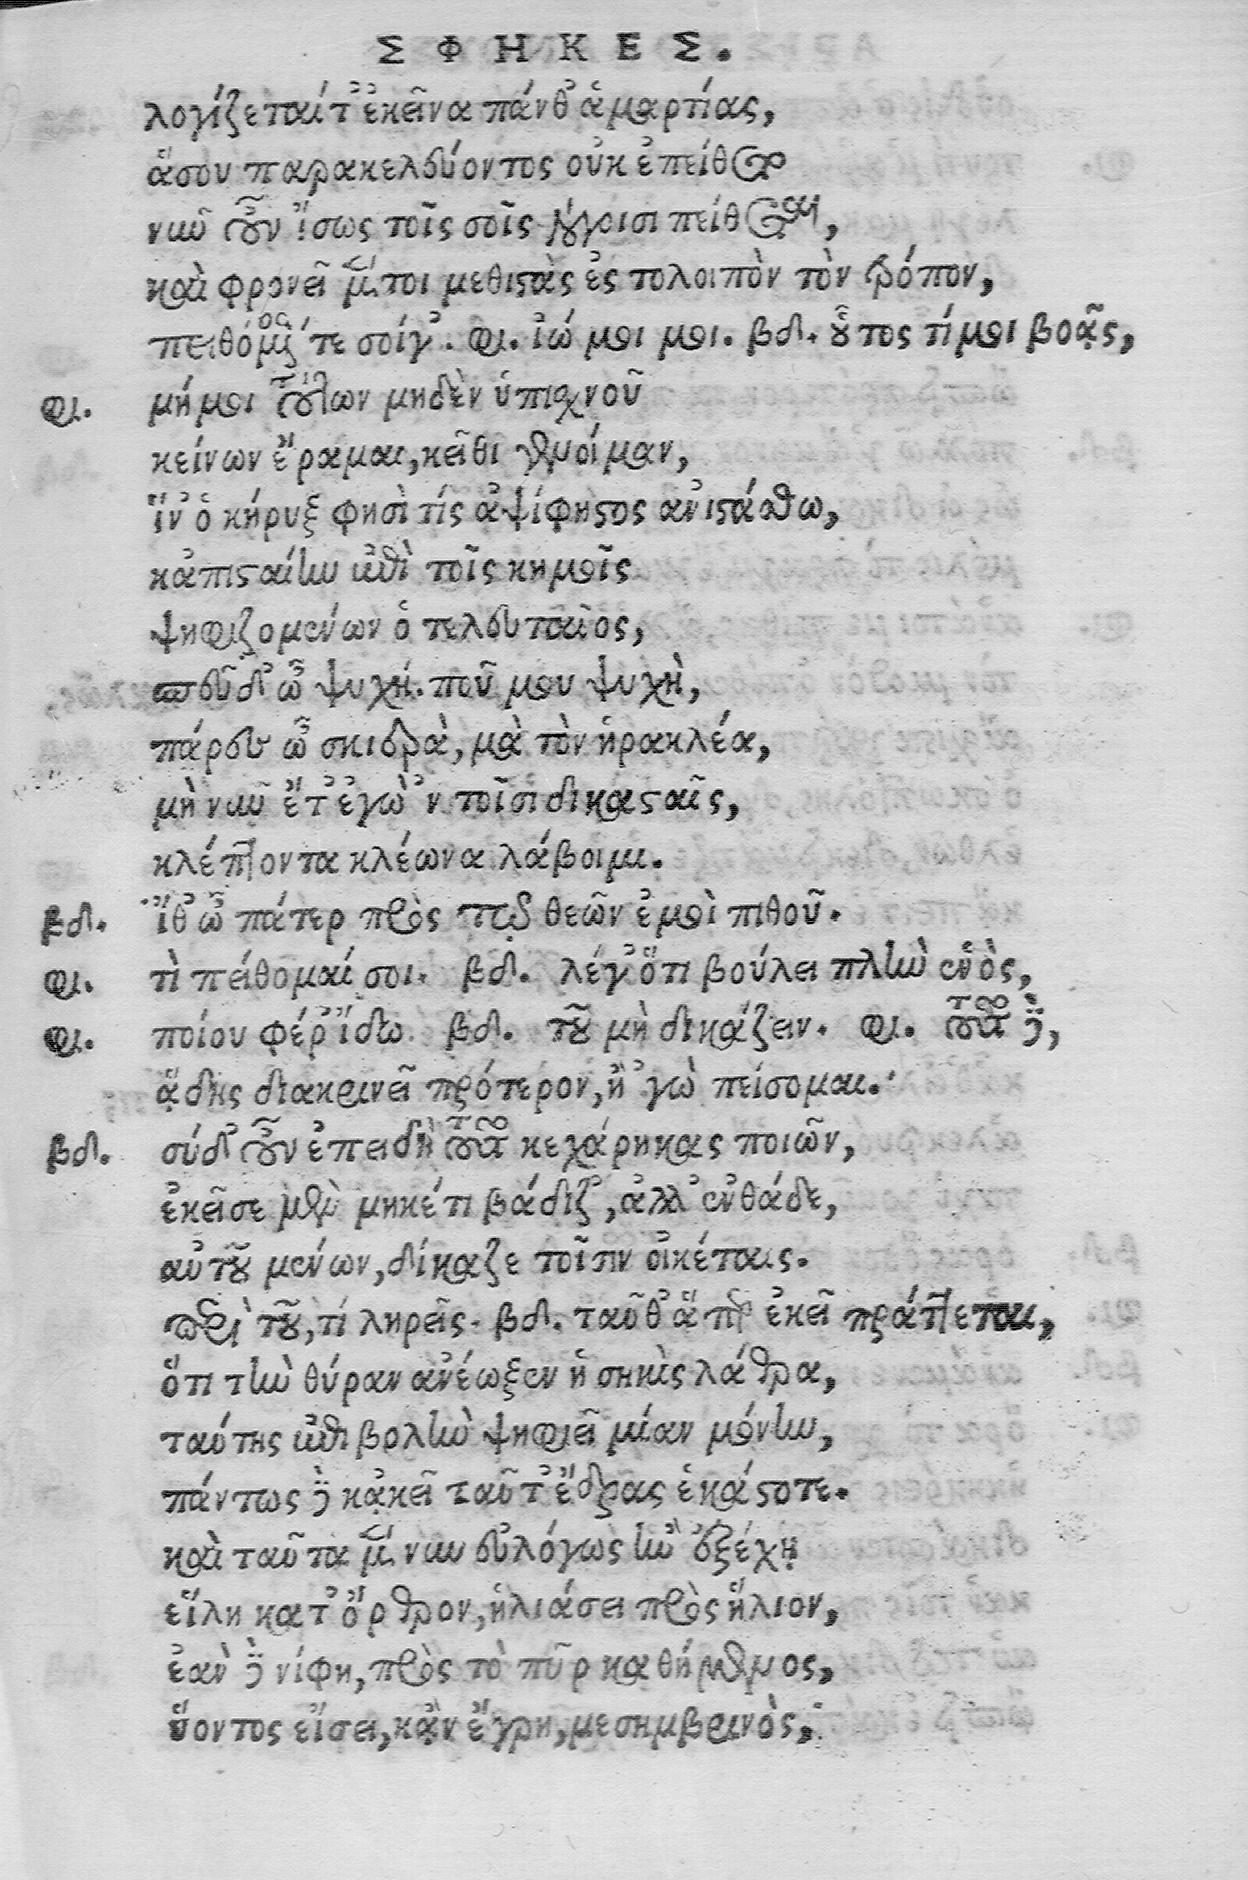 ΣΦΗΚΕΣ.
λογίζεταί τ' ἐκεῖνα πάνθ' ἁμαρτίας,
ἅ σου παρακελεύοντος οὐκ ἐπείθετο
νῦν οὖν ἴσως τοῖς σοῖς λόγοισι πείθεται,
καὶ φρονεῖ μέντοι μεθιστὰς ἐς τολοιπὸν τὸν τρόπον,
πειθόμενός τε σοίγ'. φι. ἰώ μοι μοι. βδ. οὗτος τί μοι βοᾷς,
φι. μή μοι τούτων μηδὲν ὑπισχνοῦ
κείνων ἔραμαι, κεῖθι γενοίμαν,
ἵν' ὁ κήρυξ φησὶ τίς ἀψήφιστος ἀνιστάσθω,
κἀπισταίην ἐπὶ τοῖς κημοῖς
ψηφιζομένων ὁ τελευταῖος,
σπεῦδ' ὦ ψυχή. ποῦ μου ψυχὴ,
πάρευ ὦ σκιερὰ, μὰ τὸν ἡρακλέα,
μὴ νῦν ἔτ' ἐγὼ 'ν τοῖσι δικασταῖς,
κλέπτοντα κλέωνα λάβοιμι.
βδ. ἴθ' ὦ πάτερ πρὸς τῶν θεῶν ἐμοὶ πιθοῦ.
φι. τὶ πείθομαί σοι. βδ. λέγ' ὅτι βούλει πλὴν ἑνὸς,
φι. ποίου φέρ' ἴδω. βδ. τοῦ μὴ δικάζειν. φι. τοῦτο δὲ,
ᾅδης διακρινεῖ πρότερον, ἢ 'γὼ πείσομαι.
βδ. σύ δ' οὖν ἐπειδὴ τοῦτο κεχάρηκας ποιῶν,
ἐκεῖσε μὲν μηκέτι βάδιζ', ἀλλ' ἐνθάδε,
αὐτοῦ μένων, δίκαζε τοῖσιν οἰκέταις.
περὶ τοῦ, τί ληρεῖς. βδ. ταῦθ' ἅπερ ἐκεῖ πράττεται,
ὅτι τὴν θύραν ἀνέωξεν ἡ σηκὶς λάθρα,
ταύτης ἐπιβολὴν ψηφιεῖ μίαν μόνην,
πάντως δὲ κἀκεῖ ταῦτ' ἔδρας ἑκάστοτε.
καὶ ταῦτα μέν νυν εὐλόγως ἢν ἐξέχῃ
εἵλη κατ' ὄρθρον, ἡλιάσει πρὸς ἥλιον,
ἐὰν δὲ νίφη, πρὸς τὸ πῦρ καθήμενος,
ὕοντος εἴσει, κἂν ἔγρη, μεσημβρινὸς,